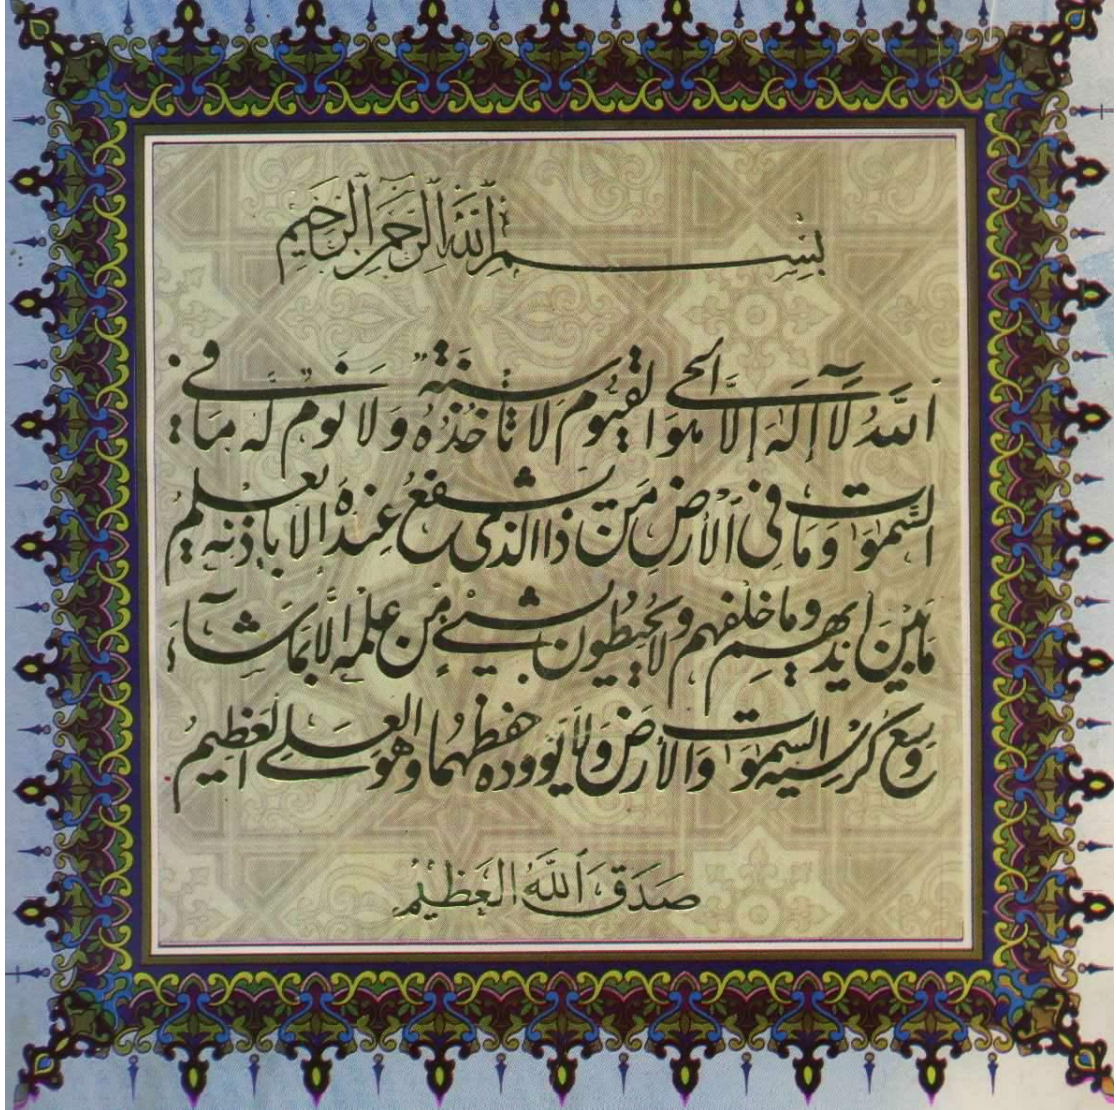 بِسْمِ اللهِ الرَّحْمٰنِ الرَّحِيْمِ
اَللهُ لَآ اِلٰهَ اِلَّا هُوَ الْحَيُّ الْقَيُّوْمُ لَا تَأْخُذُهٗ سِنَةٌ وَّلَا نَوْمٌ لَهٗ مَا فِي
السَّمٰوٰتِ وَمَا فِي الْاَرْضِ مَنْ ذَا الَّذِيْ يَشْفَعُ عِنْدَهٗ اِلَّا بِاِذْنِهٖ يَعْلَمُ
مَا بَيْنَ اَيْدِيْهِمْ وَمَا خَلْفَهُمْ وَلَا يُحِيْطُوْنَ بِشَيْءٍ مِّنْ عِلْمِهٖ اِلَّا بِمَا شَآءَ
وَسِعَ كُرْسِيُّهُ السَّمٰوٰتِ وَالْاَرْضَ وَلَا يَـُٔوْدُهٗ حِفْظُهُمَا وَهُوَ الْعَلِيُّ الْعَظِيْمُ
صَدَقَ اللهُ الْعَظِيْمُ